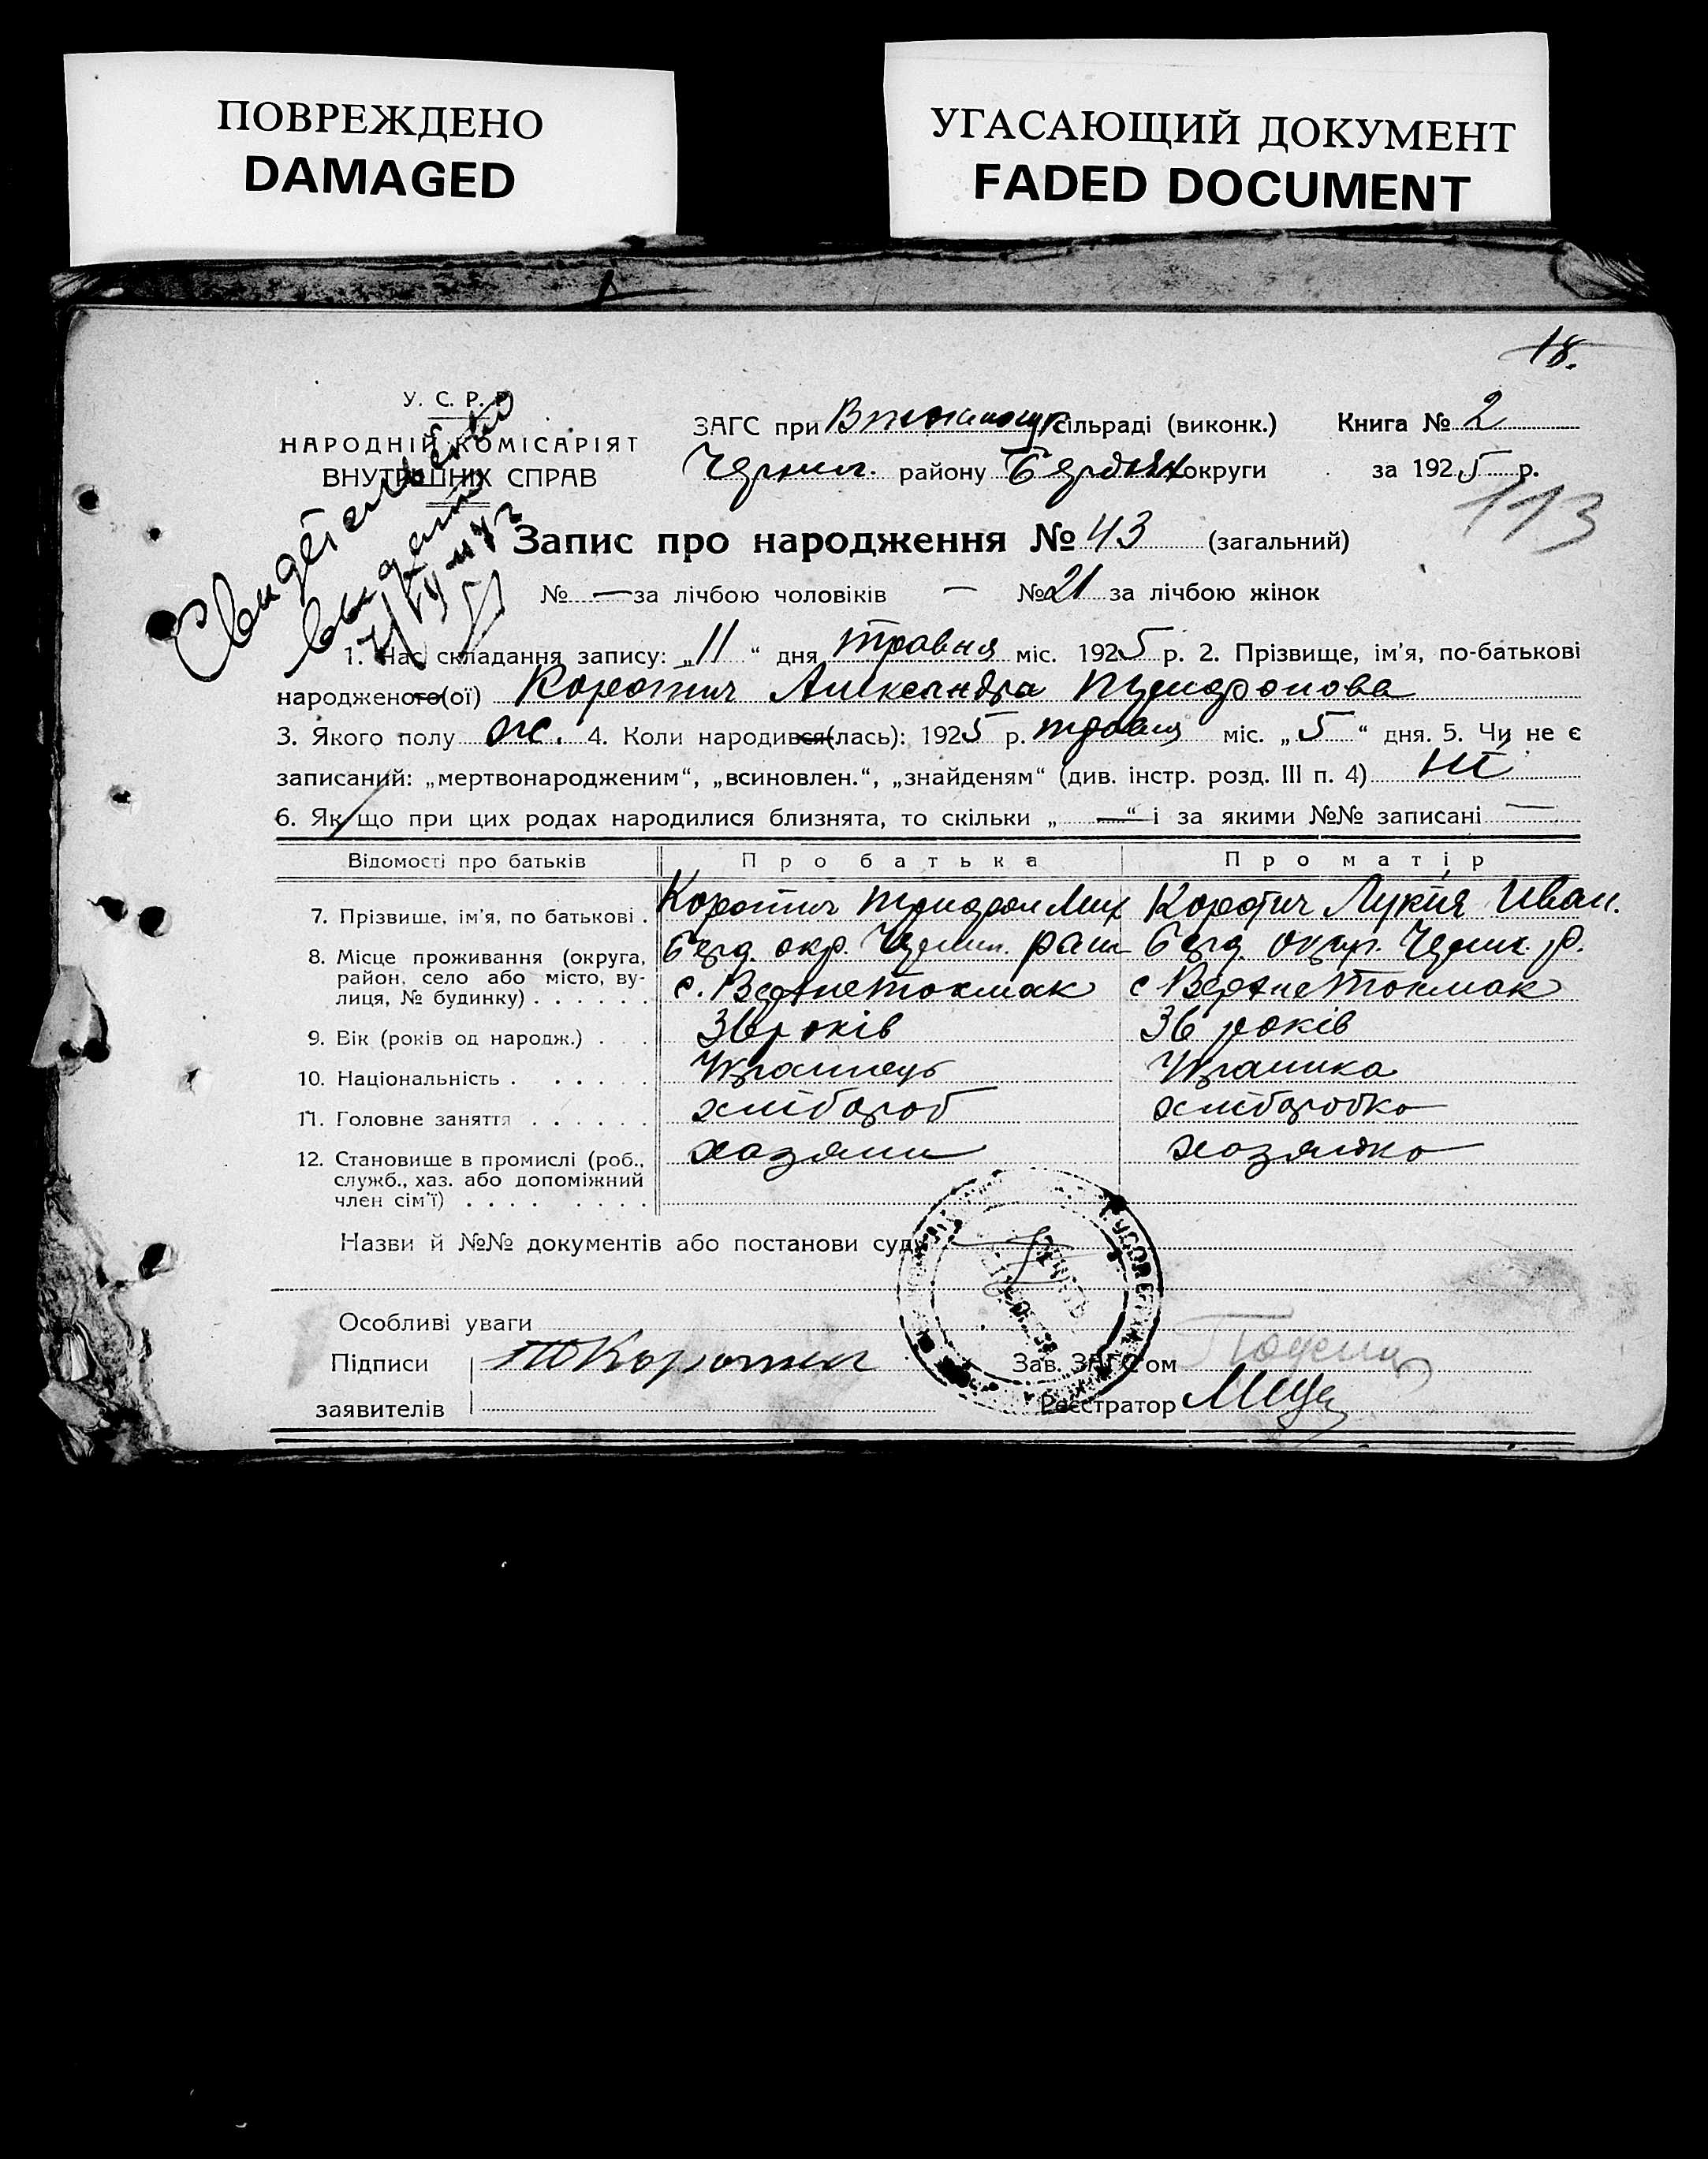 ПОВРЕЖДЕНО
DAMAGED
УГАСАЮЩИЙ ДОКУМЕНТ
FADED DOCUMENT
18.
У. С. Р. Р.
НАРОДНІЙ КОМІСАРІЯТ
ВНУТРІШНІХ СПРАВ
Свидетельство
выдано
ЗАГС при сільраді (виконк.) Книга № 2
району Бердян округи за 1925 р.
113
Запис про народження № 43 (загальний)
№ — за лічбою чоловіків — № 21 за лічбою жінок
1. Час складання запису: „11“ дня травня міс. 1925 р. 2. Прізвище, ім'я, по-батькові
народженого(ої) Коротич Александра
3. Якого полу ж. 4. Коли народився(лась): 1925 р. травня міс. „5“ дня. 5. Чи не є
записаний: „мертвонародженим“, „всиновлен.“, „знайденям“ (див. інстр. розд. III п. 4) ні
6. Як що при цих родах народилися близнята, то скільки „—“ і за якими №№ записані —
Відомості про батьків Про батька Про матір
7. Прізвище, ім'я, по батькові . Коротич Коротич Лукія Иван.
8. Місце проживання (округа, район, село або місто, вулиця, № будинку) . . . . . .
Берд. окр. рай Берд. окр. р.
с. ВерхнеТокмак с ВерхнеТокмак
9. Вік (років од народж.) . . . 36 років 36 років
10. Національність . . . . . Українець Украинка
11. Головне заняття . . . . . . хлібороб хліборобка
12. Становище в промислі (роб., служб., хаз. або допоміжний член сім'ї) . . . . . . . . хазяин хозяйка
Назви й №№ документів або постанови суду
Особливі уваги
Підписи заявителів Коротич
Зав. ЗАГС'ом
Реєстратор